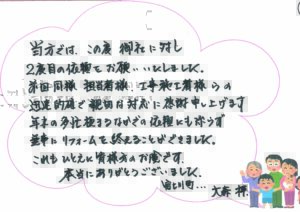 当方では、この度 御社に対し
2度目の依頼をお願いいたしました。
前回同様 担当者様 工事施工者様らの
迅速的確で親切な対応に感謝申し上げます
年末の多忙極まるなかでの依頼にも拘らず
無事にリフォームを終えることができました。
これもひとえに皆様方のお陰です。
本当にありがとうございました。
大森 様